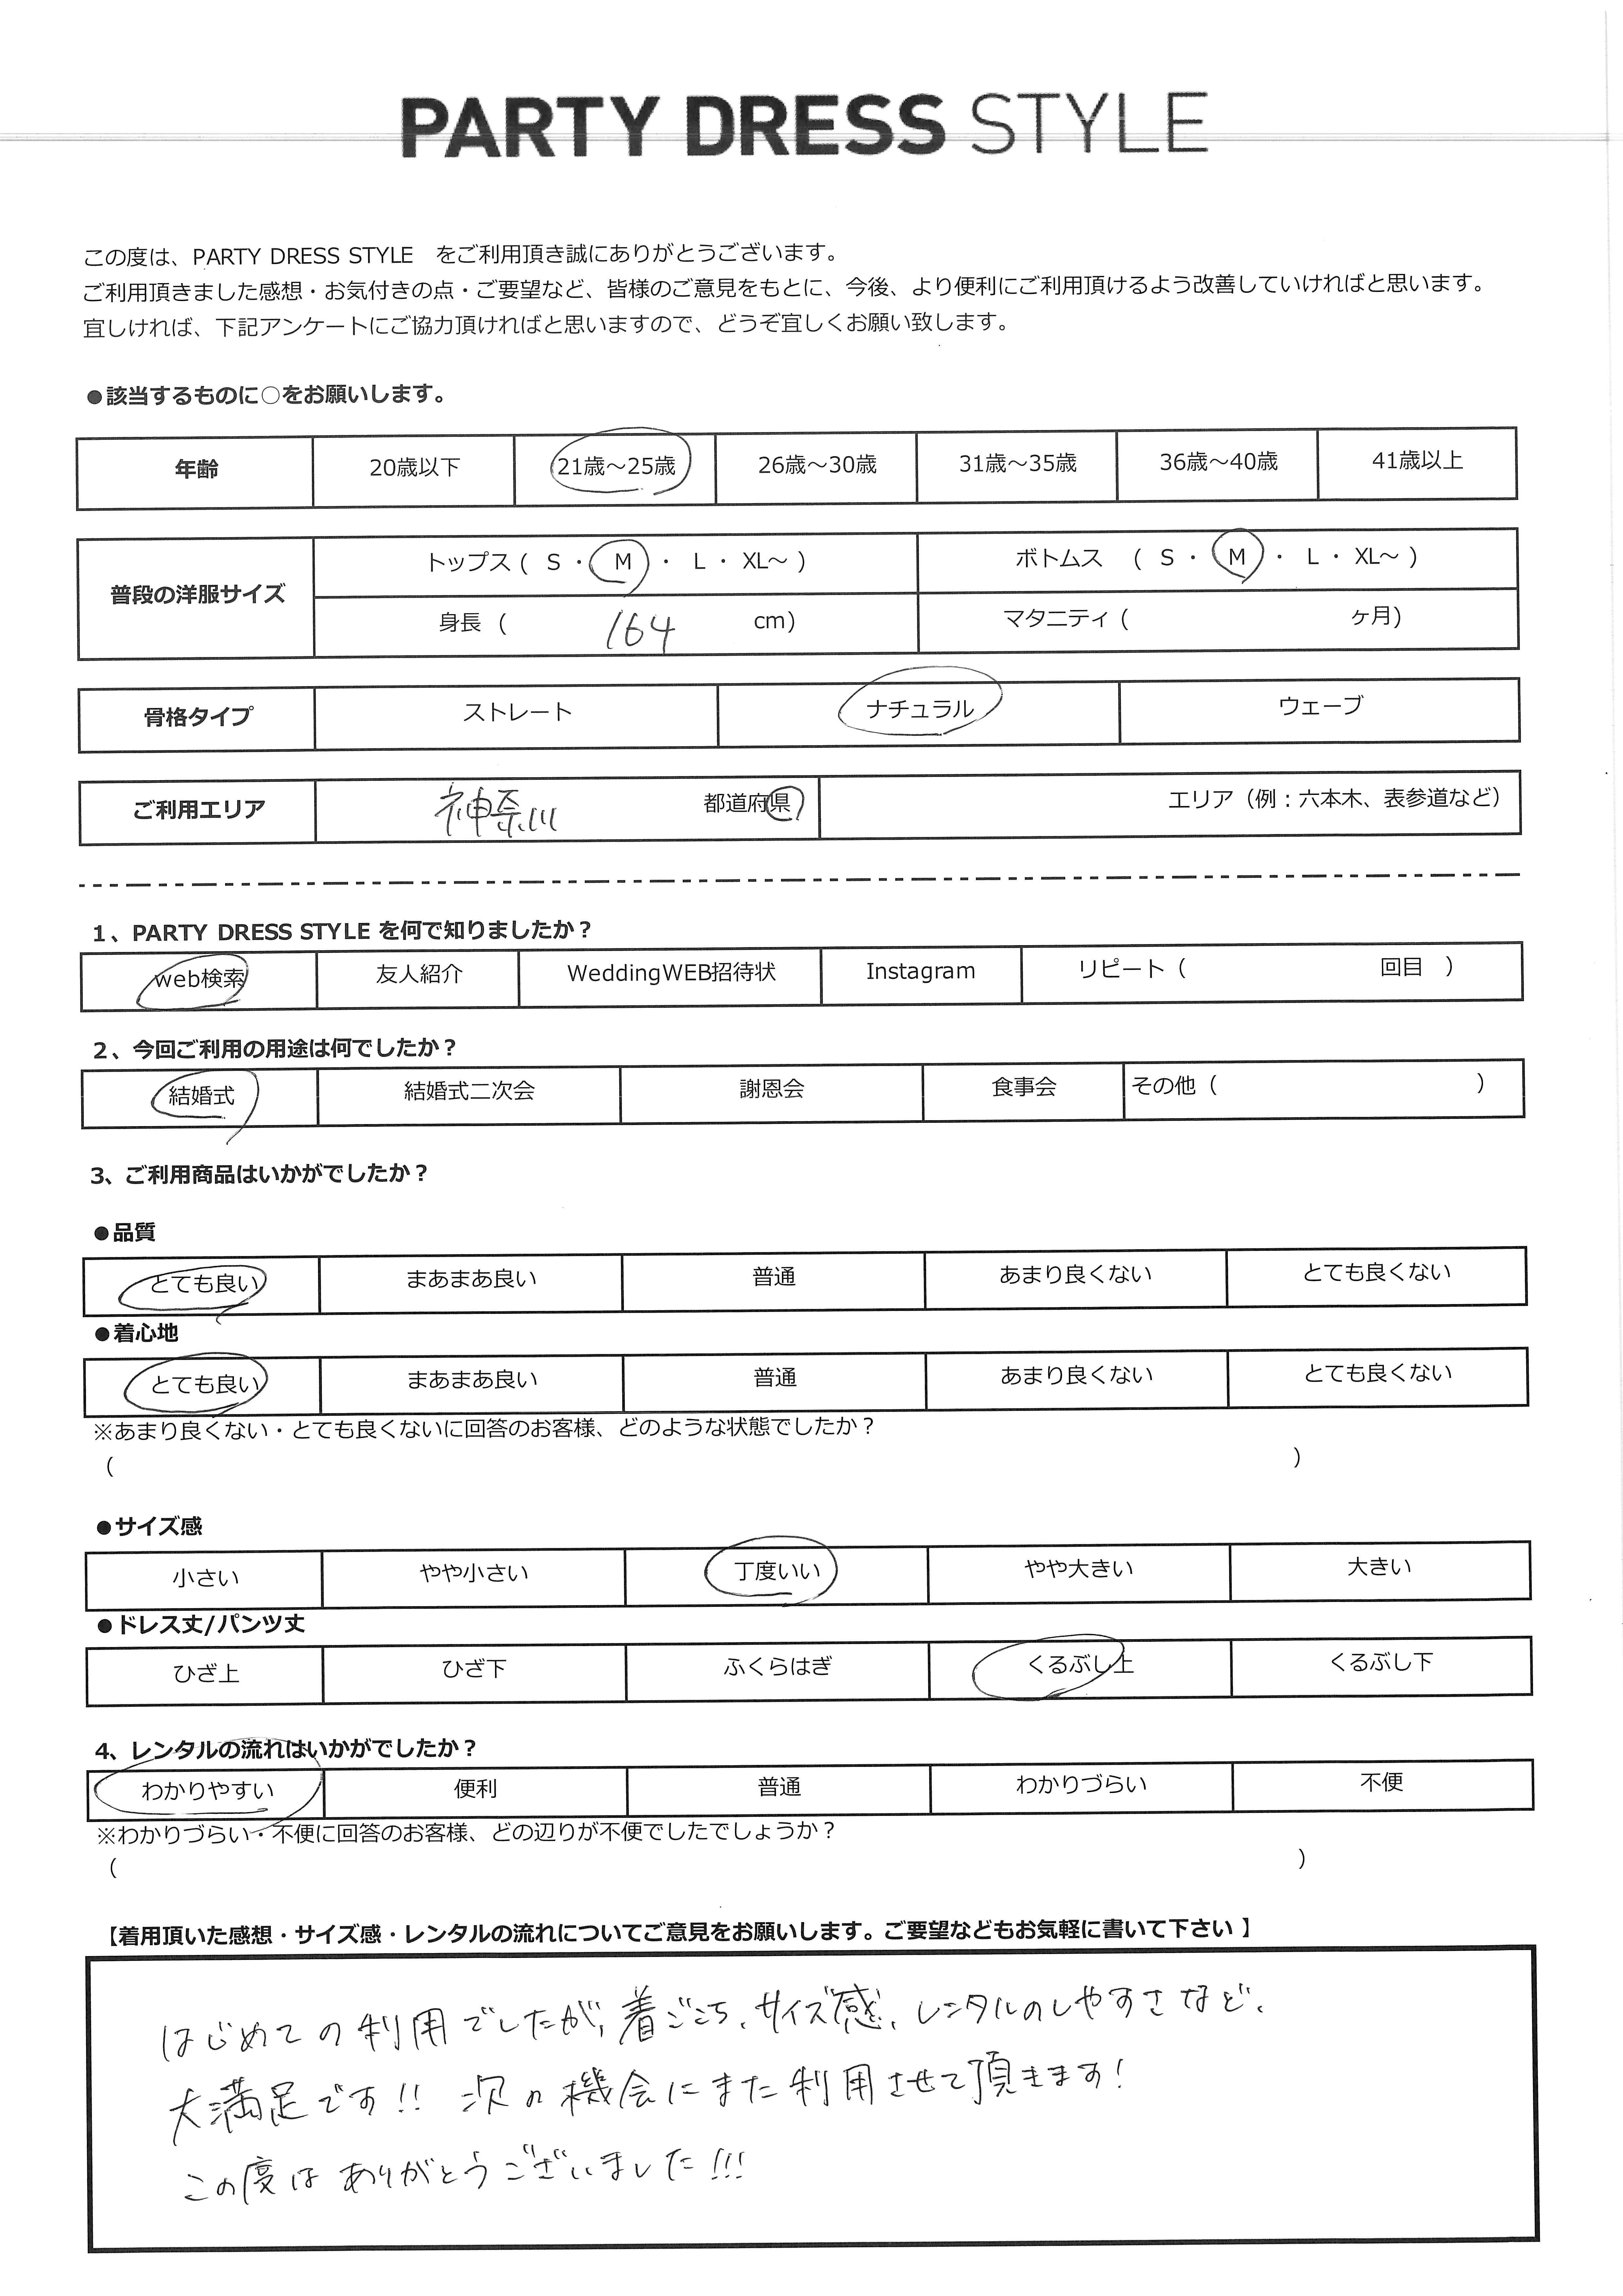 PARTY DRESS STYLE
この度は、PARTY DRESS STYLE　をご利用頂き誠にありがとうございます。
ご利用頂きました感想・お気付きの点・ご要望など、皆様のご意見をもとに、今後、より便利にご利用頂けるよう改善していければと思います。
宜しければ、下記アンケートにご協力頂ければと思いますので、どうぞ宜しくお願い致します。
●該当するものに○をお願いします。
年齢 20歳以下 21歳～25歳 26歳～30歳 31歳～35歳 36歳～40歳 41歳以上
普段の洋服サイズ トップス（ S ・ M ・ L ・ XL～ ） ボトムス （ S ・ M ・ L ・ XL～ ）
身長（ 164 cm） マタニティ（ ヶ月）
骨格タイプ ストレート ナチュラル ウェーブ
ご利用エリア 神奈川 都道府県 エリア（例：六本木、表参道など）
1、PARTY DRESS STYLE を何で知りましたか？
web検索 友人紹介 WeddingWEB招待状 Instagram リピート（ 回目 ）
2、今回ご利用の用途は何でしたか？
結婚式 結婚式二次会 謝恩会 食事会 その他（ ）
3、ご利用商品はいかがでしたか？
●品質
とても良い まあまあ良い 普通 あまり良くない とても良くない
●着心地
とても良い まあまあ良い 普通 あまり良くない とても良くない
※あまり良くない・とても良くないに回答のお客様、どのような状態でしたか？
（ ）
●サイズ感
小さい やや小さい 丁度いい やや大きい 大きい
●ドレス丈/パンツ丈
ひざ上 ひざ下 ふくらはぎ くるぶし上 くるぶし下
4、レンタルの流れはいかがでしたか？
わかりやすい 便利 普通 わかりづらい 不便
※わかりづらい・不便に回答のお客様、どの辺りが不便でしたでしょうか？
（ ）
【着用頂いた感想・サイズ感・レンタルの流れについてご意見をお願いします。ご要望などもお気軽に書いて下さい 】
はじめての利用でしたが、着ごこち、サイズ感、レンタルのしやすさなど、
大満足です!! 次の機会にまた利用させて頂きます!
この度はありがとうございました!!!